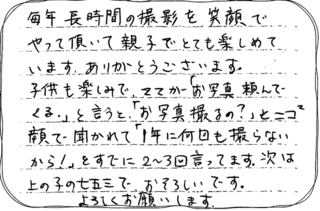 毎年長時間の撮影を笑顔で
やって頂いて親子でとても楽しめて
います。ありがとうございます。
子供も楽しみで、ママが「お写真頼んで
くる。」と言うと、「お写真撮るの?」とニコニコ
顔で聞かれて「1年に何回も撮らない
から!」とすでに2〜3回言ってます。次は
上の子の七五三で、おそろしいです。
よろしくお願いします。